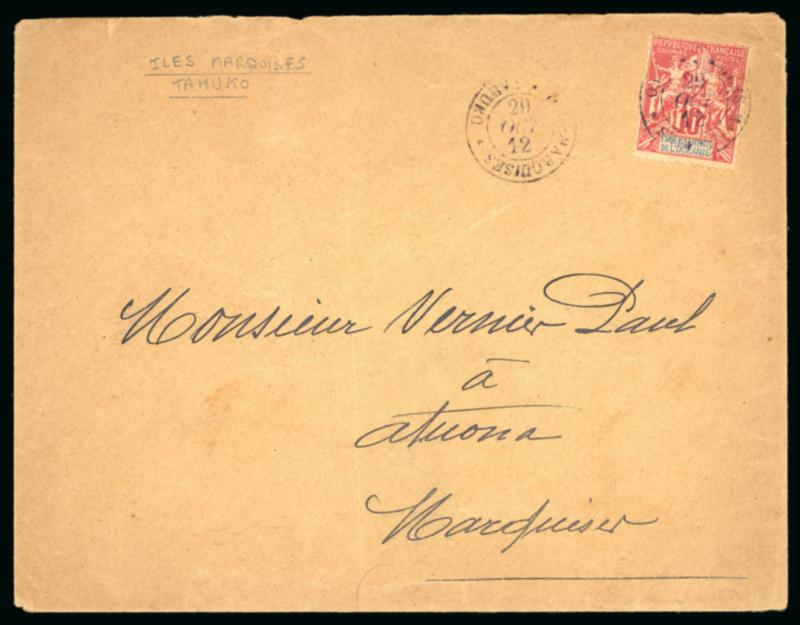 ILES MARQUISES
TAHUKO
TAHUKO
MARQUISES
29
OCT
12
REPUBLIQUE FRANÇAISE
COLONIES POSTES
29
OCT
12
10
ETABLISSEMENTS
DE L'OCEANIE
Monsieur Vernier Paul
à
atuona
Marquises